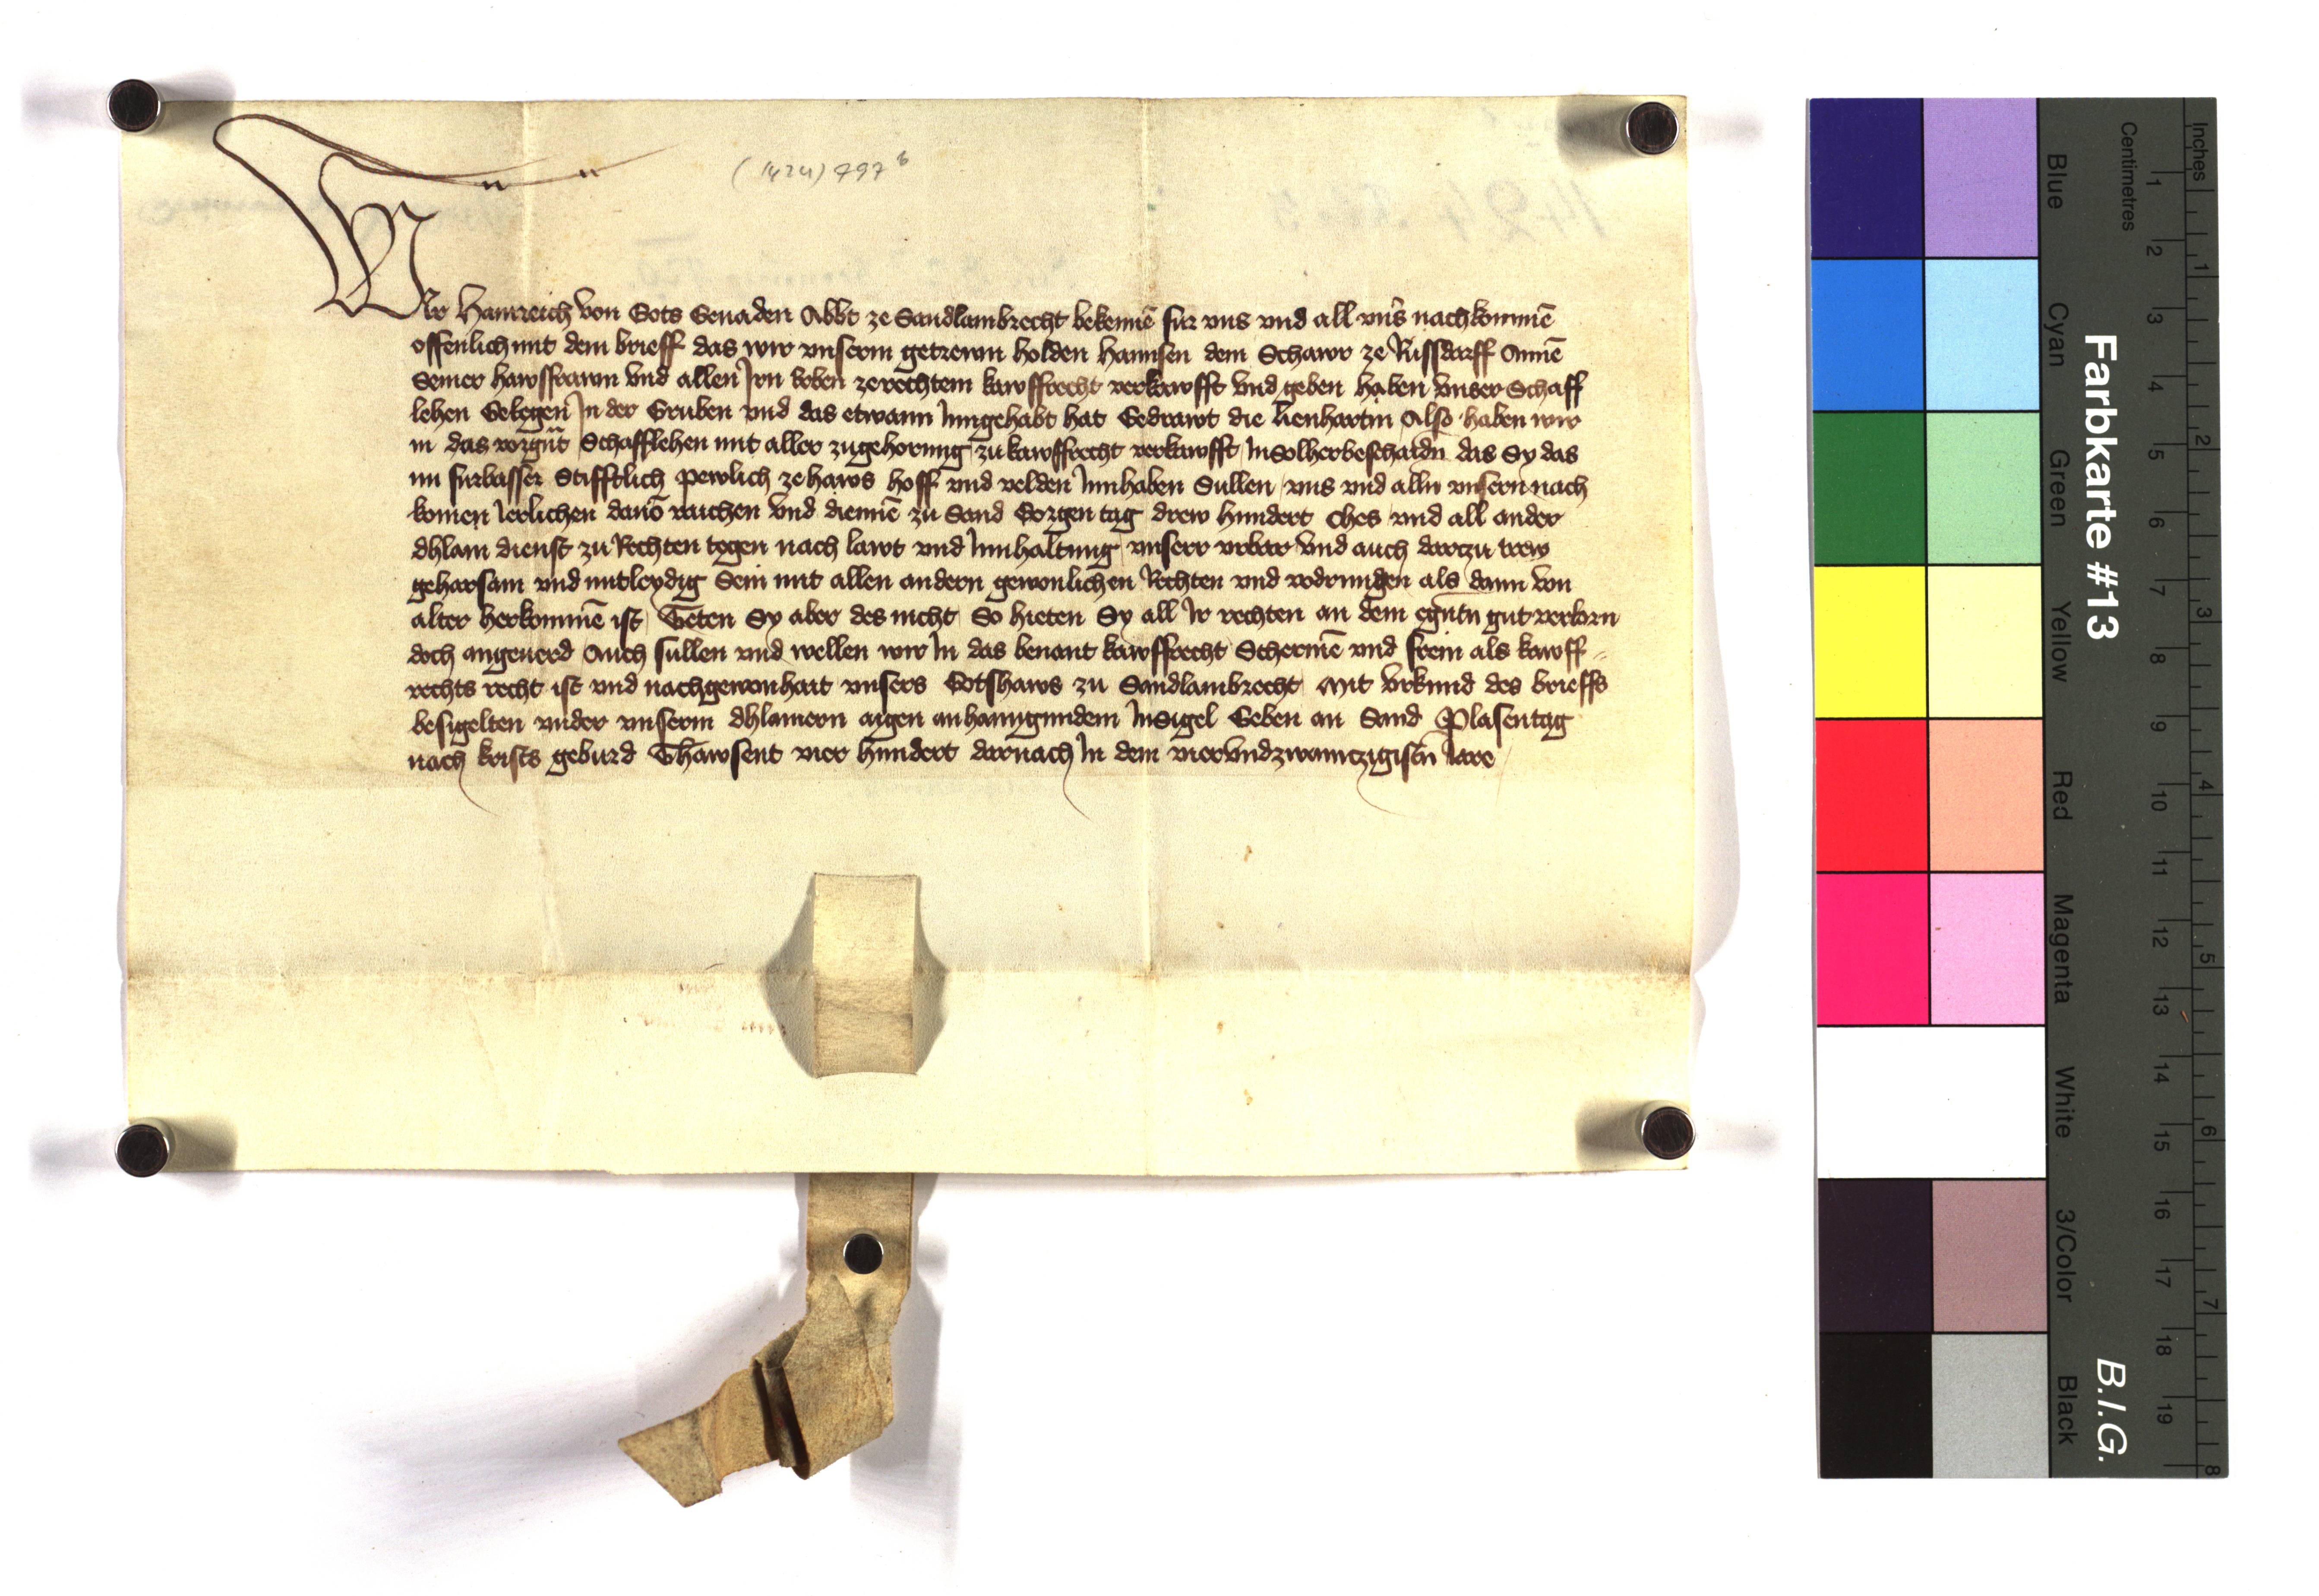 (1424) 497 b
Wir Hainreich von Gots Genaden Abbt ze Sandlambrecht bekennē fur vns vnd all vnsˀ nachkommē
offenlich mit dem brieff das wir vnserm getrewn holden Hannsen dem Schawr ze Russdarff Annē
Seiner hawsfrawn vnd allen Irn Erben ze rechtem kawffrecht verkawfft vnd geben haben vnser Schaff
lehen Gelegen In der Gruben vnd das etwann Inngehabt hat Gedrawt die Lienhartin Also haben wir
in das vorgūt Schafflehen mit aller zugehorung zu kawffrecht verkawfft In Solher beschaidn das Sy das
nu furbasser Stifftlich pewlich ze haws hoff vnd velden Innhaben Sullen vns vnd alln vnsern nach
komen Ierlichen dauō raichen vnd diennē zu Sand Gorgen tag drew hundert Ches vnd all ander
chlain dienst zu Rechten tegen nach lawt vnd Innhaltung vnserr vrbar vnd auch darczu trew
gehorsam vnd mitleydig Sein mit allen andern gewonlichen Rechten vnd vodrungen als dann von
alter herkommē ist Teten Sy aber des nicht So hieten Sy all Ir rechten an dem egn̄tn gut verlorn
doch angeuerd Auch sullen vnd wellen wir In das benant kawffrecht Schermē vnd frein als kawff
rechts recht ist vnd nach gewonhait vnsers Gotshaws zu Sandlambrecht Mit vrkund des brieffs
besigelten vnder vnserm chlainern aigen anhanngundem Insigel Geben an Sand Plasentag
nach krists geburd Thawsent vier hundert darnach In dem viervndzwainczigistn̄ Iare
Farbkarte #13
B.I.G.
Blue Cyan Green Yellow Red Magenta White 3/Color Black
Centimetres 1 2 3 4 5 6 7 8 9 10 11 12 13 14 15 16 17 18 19
Inches 1 2 3 4 5 6 7 8